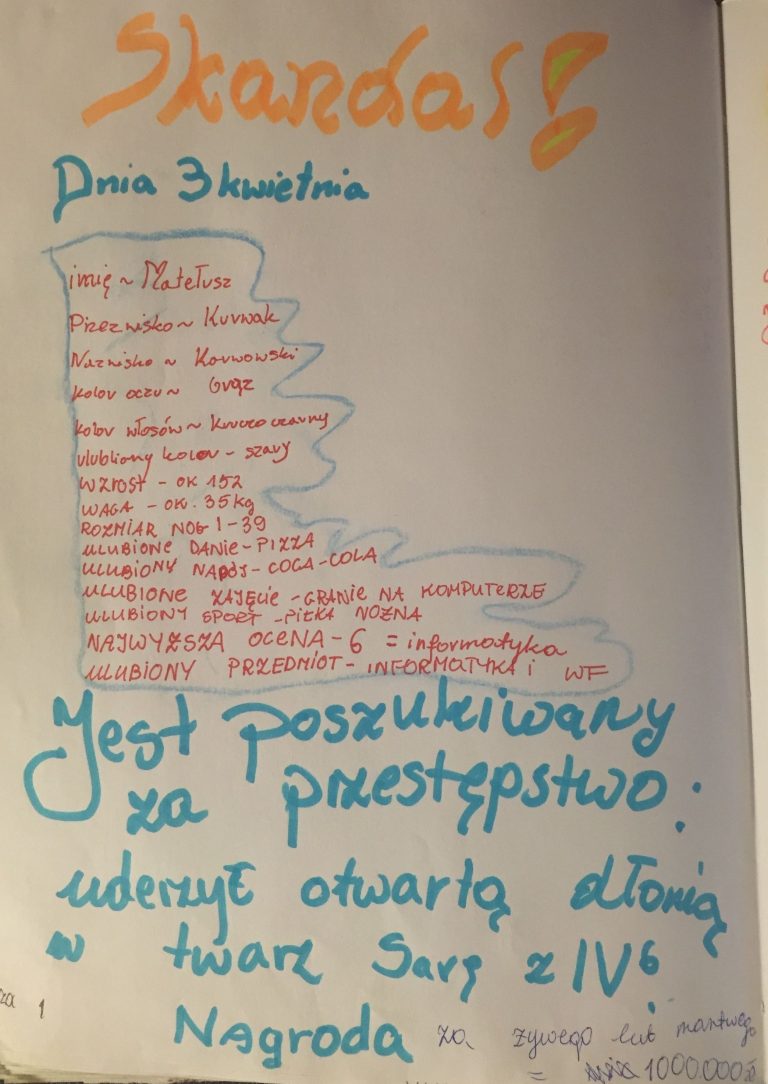 Skandal!
Dnia 3 kwietnia
imię ~ Matełusz
Przezwisko ~ Kurwak
Nazwisko ~ Korwowski
kolor oczu ~ Brąz
kolor włosów ~ kruczoczarny
ulubiony kolor - szary
WZROST - OK 152
WAGA - OK. 35kg
ROZMIAR NOGI - 39
ULUBIONE DANIE - PIZZA
ULUBIONY NAPÓJ - COCA-COLA
ULUBIONE ZAJĘCIE - GRANIE NA KOMPUTERZE
ULUBIONY SPORT - PIŁKA NOŻNA
NAJWYŻSZA OCENA - 6 = informatyka
ULUBIONY PRZEDMIOT - INFORMATYKA i WF
Jest poszukiwany
za przestępstwo:
uderzył otwartą dłonią
w twarz Sarę z IV b
za 1
NAgroda za żywego lub martwego
= 1000.000 zł